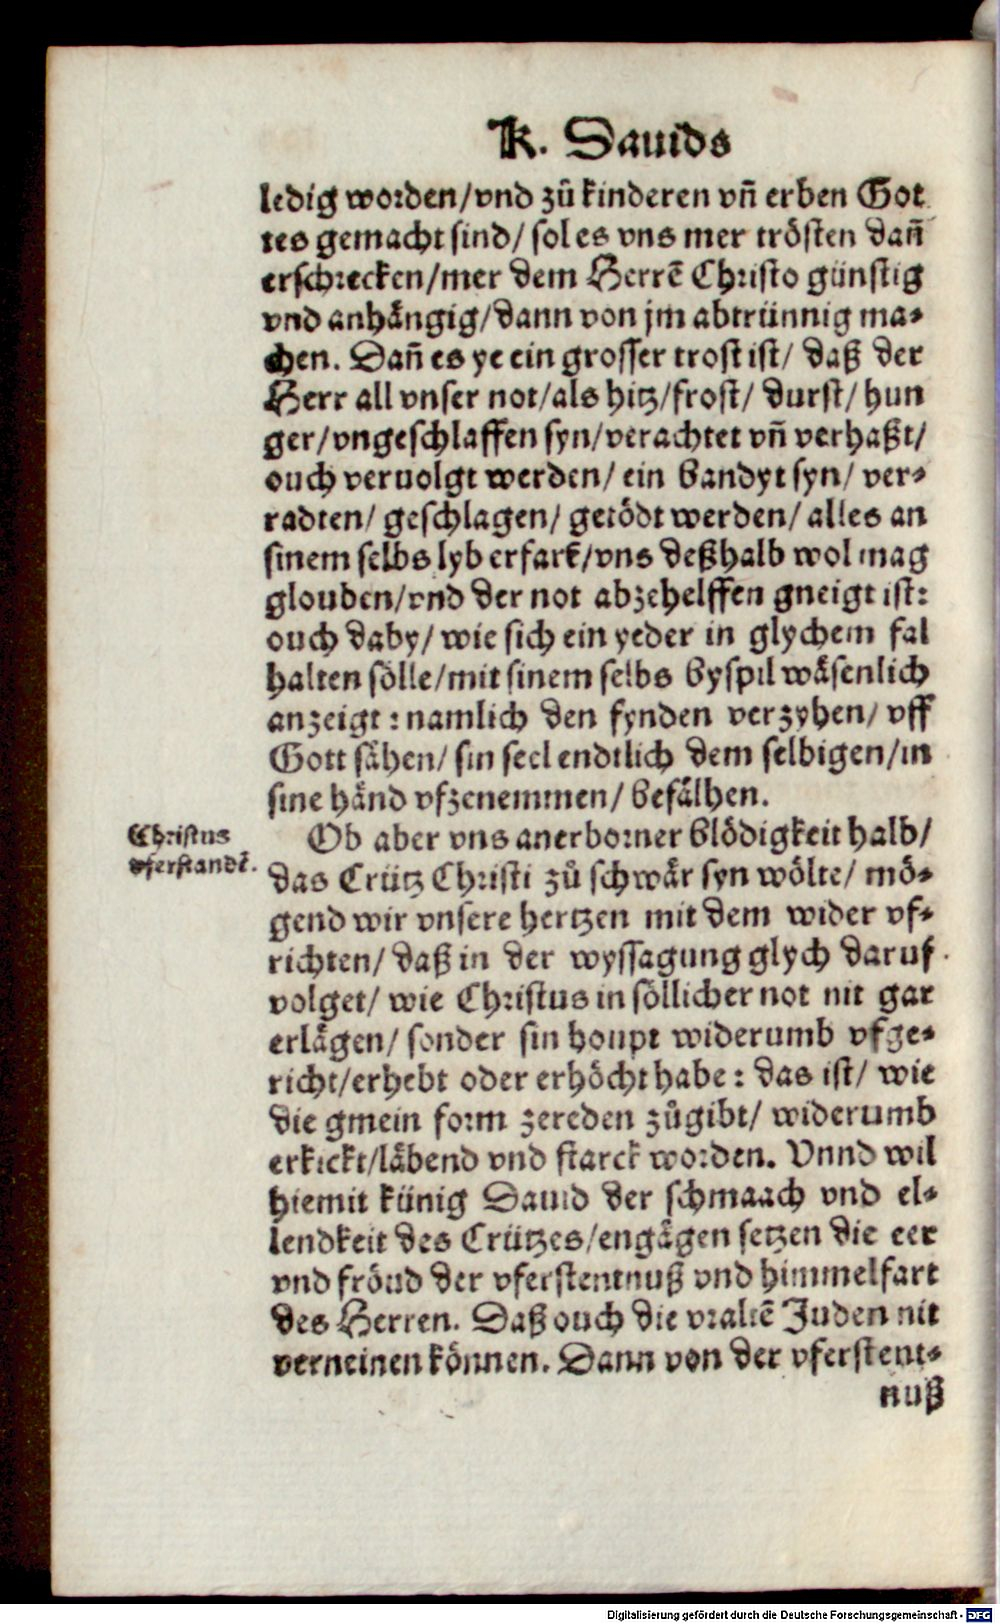 K. Dauids
ledig worden/vnd zů kinderen vñ erben Got
tes gemacht sind/ sol es vns mer trösten dañ
erschrecken/mer dem Herrē Christo günstig
vnd anhängig/dann von jm abtrünnig ma-
chen. Dañ es ye ein grosser trost ist/ daß der
Herr all vnser not/als hitz/frost/ durst/ hun
ger/vngeschlaffen syn/verachtet vñ verhaßt/
ouch veruolgt werden/ ein bandyt syn/ ver-
radten/ geschlagen/ getödt werden/ alles an
sinem selbs lyb erfarē/vns deßhalb wol mag
glouben/vnd der not abzehelffen gneigt ist:
ouch daby/ wie sich ein yeder in glychem fal
halten sölle/mit sinem selbs byspil wäsenlich
anzeigt: namlich den fynden verzyhen/ vff
Gott sähen/ sin seel endtlich dem selbigen/in
sine händ vfzenemmen/ befälhen.
Christus
vferstandē.
Ob aber vns anerborner blödigkeit halb/
das Crütz Christi zů schwär syn wölte/ mö-
gend wir vnsere hertzen mit dem wider vf-
richten/ daß in der wyssagung glych daruf
volget/ wie Christus in söllicher not nit gar
erlägen/ sonder sin houpt widerumb vfge-
richt/erhebt oder erhöcht habe: das ist/ wie
die gmein form zereden zůgibt/ widerumb
erkickt/läbend vnd starck worden. Vnnd wil
hiemit künig Dauid der schmaach vnd el-
lendkeit des Crützes/engägen setzen die eer
vnd fröud der vferstentnuß vnd himmelfart
des Herren. Daß ouch die vraltē Juden nit
verneinen können. Dann von der vferstent-
nuß
Digitalisierung gefördert durch die Deutsche Forschungsgemeinschaft - DFG